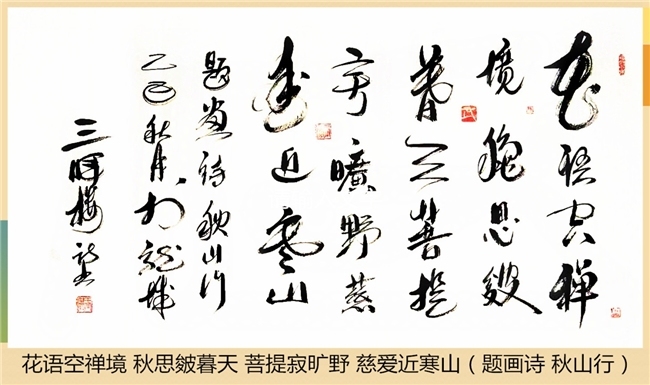 花語空禪
境秋思皴
暮天菩提
寂曠野慈
愛近寒山
題畫詩秋山行
乙巳秋月於龍城
三樓
花语空禅境 秋思皴暮天 菩提寂旷野 慈爱近寒山（题画诗 秋山行）